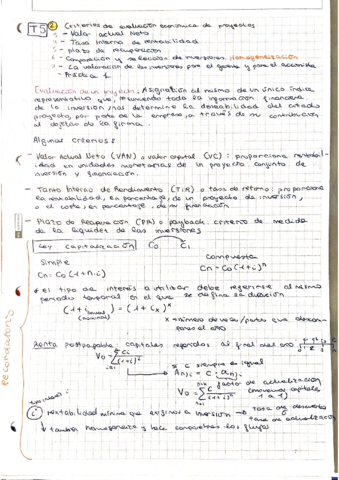 T5
Criterios de evaluación económica de proyectos
- Valor Actual Neto
- Tasa Interna de rentabilidad
- plazo de recuperación
- Comparación y selección de inversiones: homogeneización
- La valoración de las inversiones por el gestor y para el accionista
- Práctica 1
Evaluación de un proyecto: Asignación al mismo de un único índice
representativo que, resumiendo toda la información financiera
de la inversión, nos determine la deseabilidad del citado
proyecto, por parte de la empresa, a través de su contribución
al objetivo de la firma.
Algunos criterios:
- Valor Actual Neto (VAN) o valor capital (VC): proporciona rentabilidad
en unidades monetarias de un proyecto, conjunto de
inversión y financiación.
- Tanto Interno de Rendimiento (TIR) o tasa de retorno: proporciona
la rentabilidad, en porcentaje, de un proyecto de inversión,
o el coste, en porcentaje, de su financiación.
- Plazo de Recuperación (PR) o payback: criterio de medida
de la liquidez de las inversiones
Ley capitalización C₀ C₁
Simple compuesta
Cn = C₀(1+n·i) Cn = C₀(1+i)ⁿ
* el tipo de interés a utilizar debe referirse al mismo
periodo temporal en el que se define la duración
(nominal)
x = número de veces/partes que
el año
Renta postpagable: capitales referidos al final del año
C siempre es igual
factor de actualización
1 a 1)
i rentabilidad mínima que exigimos a inversión → tasa de descuento
tasa actualización
↓ también homogeneiza y hace comparables los flujos
Recordatorio